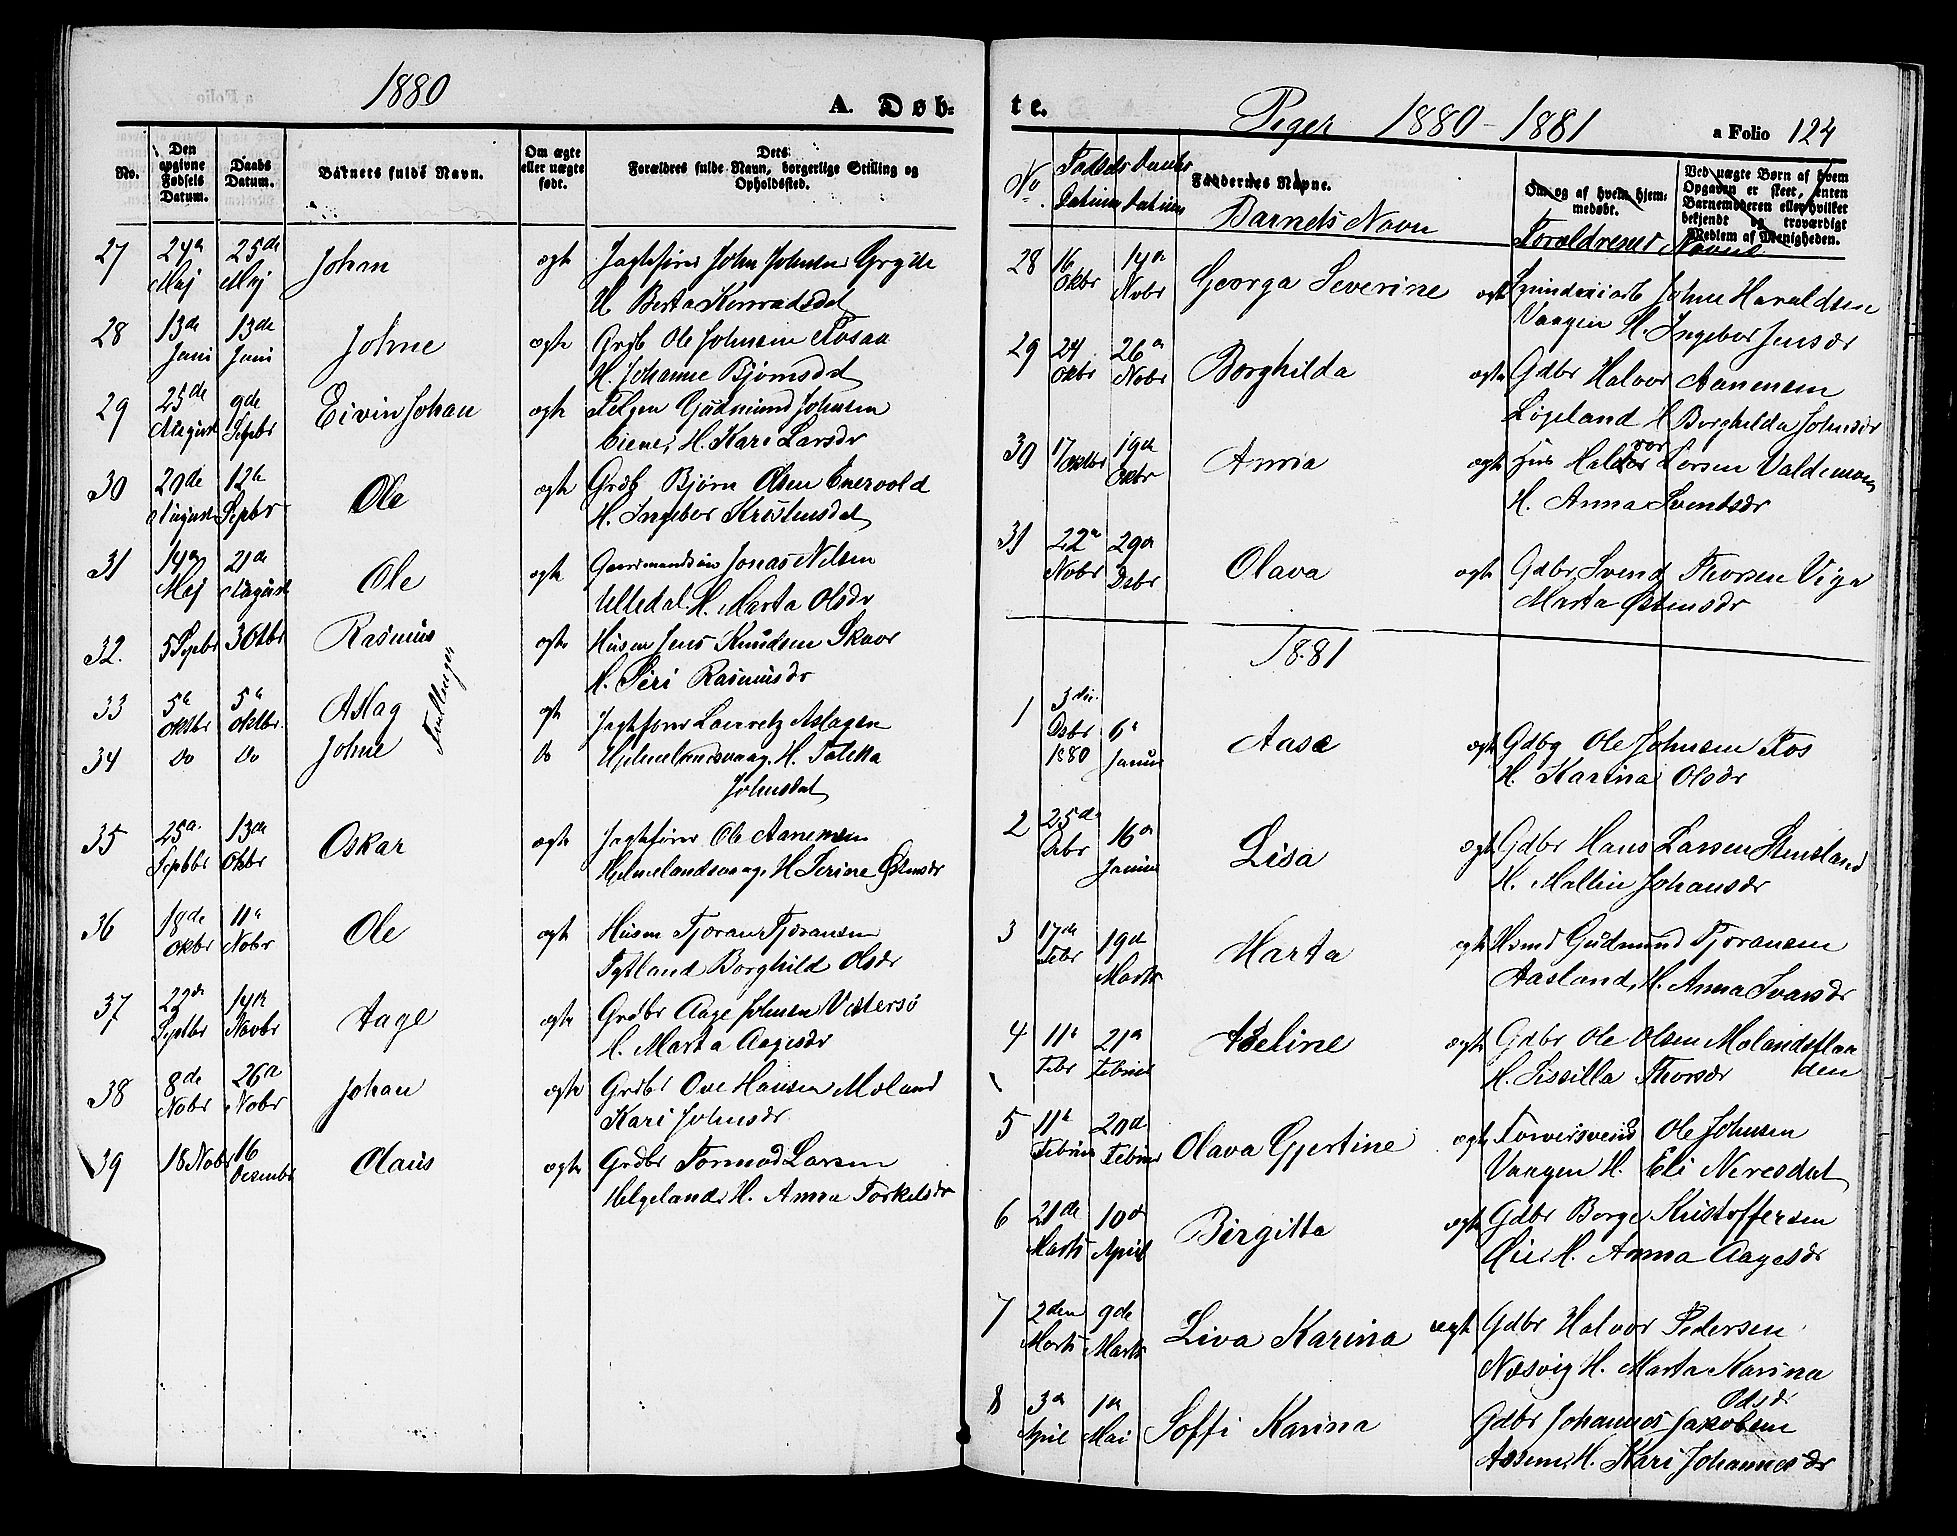 1880
A. Døb-
No.
Den opgivne Fødsels Datum.
Daabs Datum.
Barnets fulde Navn.
Om ægte eller uægte født.
Dets Forældres fulde Navn, borgerlige Stilling og Opholdssted.
27 24a Maj 25de Maj Johan ægte Jagtefører John Johnsen Gryde
H. Berta Konradsdat
28 13de Juni 13de Juni Johne ægte Grdb Ole Johnsen Fosaa
H. Johanne Bjørnsdat
29 25de August 9de Septbr Eivin Johan ægte Gudmund Johnsen
H. Kari Larsdr
30 29de August 12te Septbr Ole ægte Grdb Bjørn Olsen Enervold
H. Ingebor Kristensdat
31 14a Maj 21de August Ole ægte Gaardmandssøn Jonas Nilsen
Ulledal H. Marta Olsdr
32. 5 Septbr 3 Oktbr Rasmus ægte Husm Jens Knudsen Skaar
H. Siri Rasmusdr
33 5te Oktbr 5te Oktbr. Aslag ægt Jagtfører Lauretz Aslagsen
Tvillinger
34 do do Johne do Hjelmelandsvaag. H. Taletta
Johnsdat
35 25a Septbr 13de Oktbr Oskar ægte Jagtefører Ole Aanensen
Hjelmelandsvaag. H Serine Østensdr
36 18de Oktbr 11te Nobr Ole ægte Husm Tjøran Tjøransen
Tytland Borghild Olsdr
37 22de Septbr 14de Novbr Aage ægte Grdbr Aage Johnsen Vestersø
H. Marta Aagesdr
38 8de Nobr 26a Nobr Johan ægte Grdbr Ove Hansen Mæland
Kari Johnsdr
39 18 Nobr 16 Desembr Olaus ægte Grdbr Tormod Larsen
Helgeland. H. Anna Torkelsdr
te.
Piger 1880-1881
a Folio 124
No. Fødsels Datum Daabs Datum
Faddernes Navne.
Barnets Navn
Om og af hvem hjem-
medøbt.
Ved uægte Børn af hvem
Opgaven er skeet, enten
Barnemoderen eller hvilket
bekjendt og troværdigt
Medlem af Menigheden.
Forældrenes Navne
28 16 Oktbr 14de Nobr Georga Severine ægte Spinderiarb Johne Haraldsen
Vaagen H. Ingebor Jensdr
29 24 Oktbr 26a Nobr Borghilda ægte Gdbr Halvor Aanensen
Løgeland H Borghilda Johnsdr
30 17 Oktbr 19de Oktbr Anna ægte Hus Halvor Larsen Valdemoen
H. Anna Svendsdr
31 22a Nobr 29de Dsbr Olava ægte Gdbr Svend Thorsen Viga
Marta Østensdr
1881
1 3die Dsbr 1880 6te Januar Aasa ægte Gdbr Ole Johnsen Fos
H. Karina Olsdr
2 25de Dsbr 16de Januar Lisa ægte Gdbr Hans Larsen Stensland
H. Mallin Johansdr
3 17de Febr 19de Marts Marta ægte Gudmund Tjøransen
Aasland, H. Anna Ivarsdr
4 11te Febr 21de Februar Aseline ægte Gdbr Ole Olsen Mølandsflaa
den
H. Sissilla Thorsdr
5 11te Februar 20de Februar Olava Gjertine ægte Farversvend Ole Johnsen
Vaagen H. Eli Neresdat
6 21de Marts 10de April Birgitta ægte Gdbr Borge Kristoffersen
Øie. H. Anna Aagesdr
7 2den Marts 9de Marts Liva Karina ægte Gdbr Halvor Pedersen
Næsvig H. Marta Karina
Olsdr
8 3a April 1a Mai Soffi Karina Gdbr Johannes Jakobsen
Assem H. Kari Johannesdr